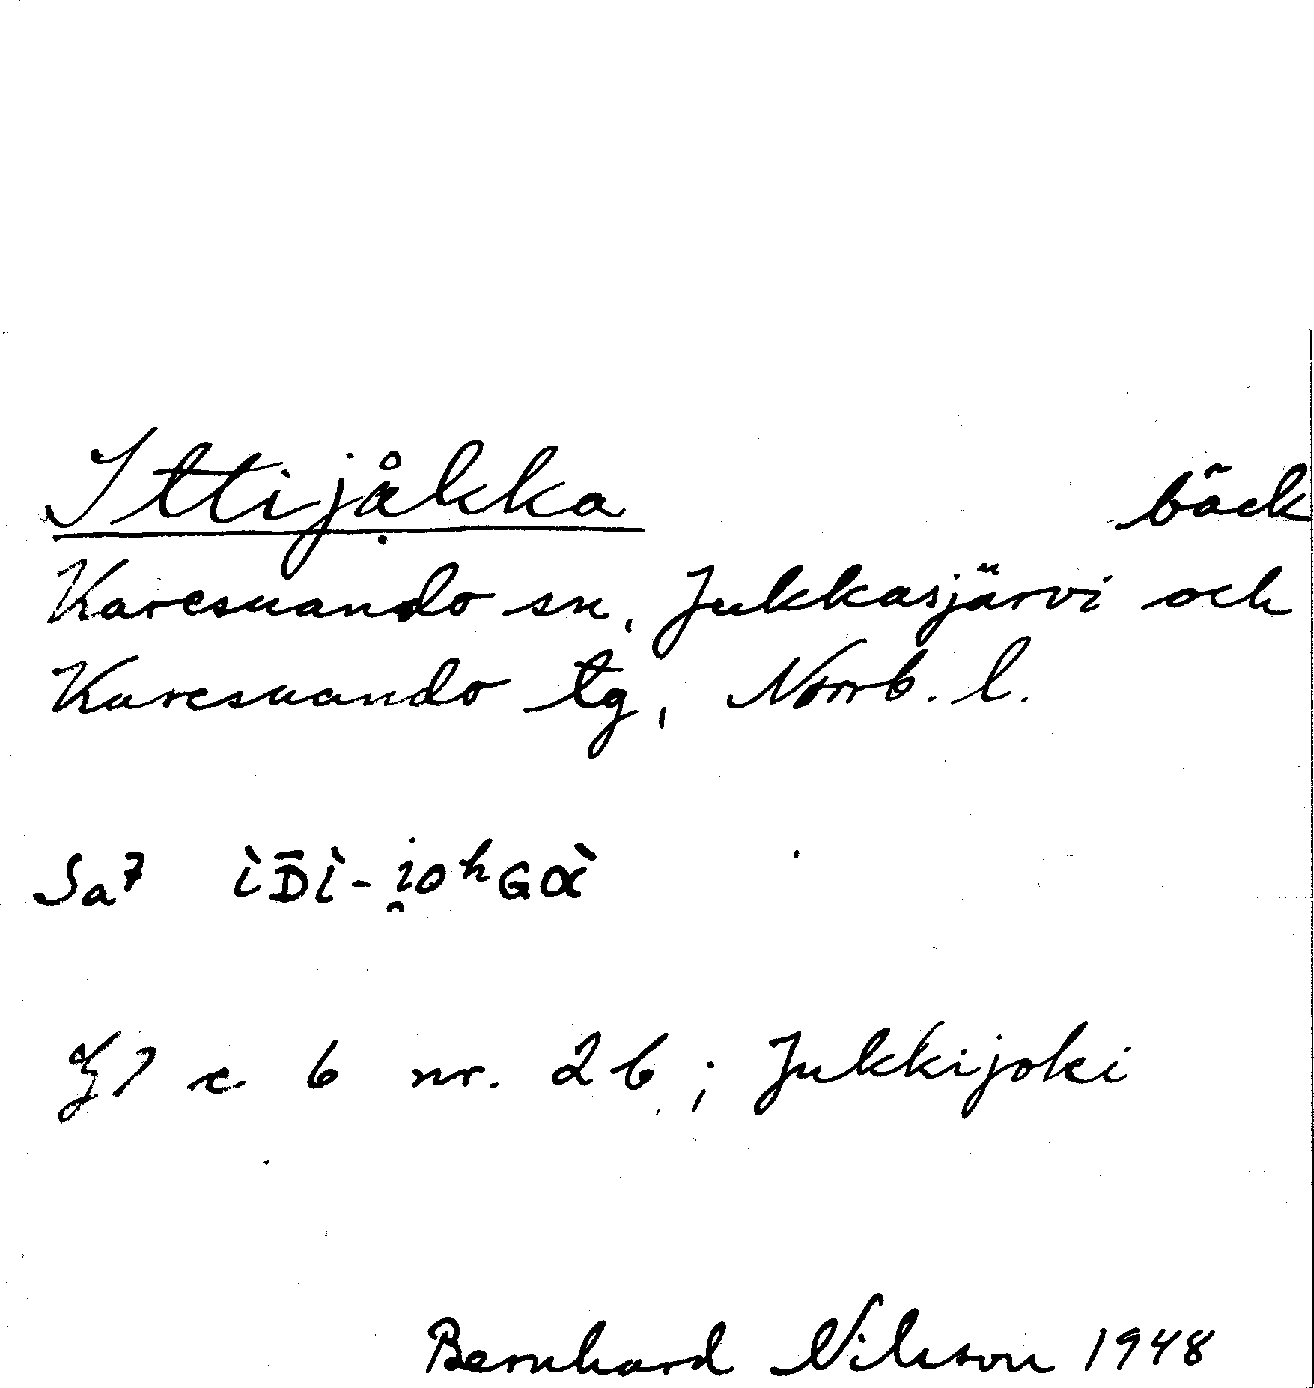 Ittijåkka bäck
Karesuando sn, Jukkasjärvi och
Karesuando tg, Norrb. l.
Sa7 ìD̄ì-i̯oʰGὰ
c 6 nr. 26; Jukkijoki
Bernhard Nilsson 1948